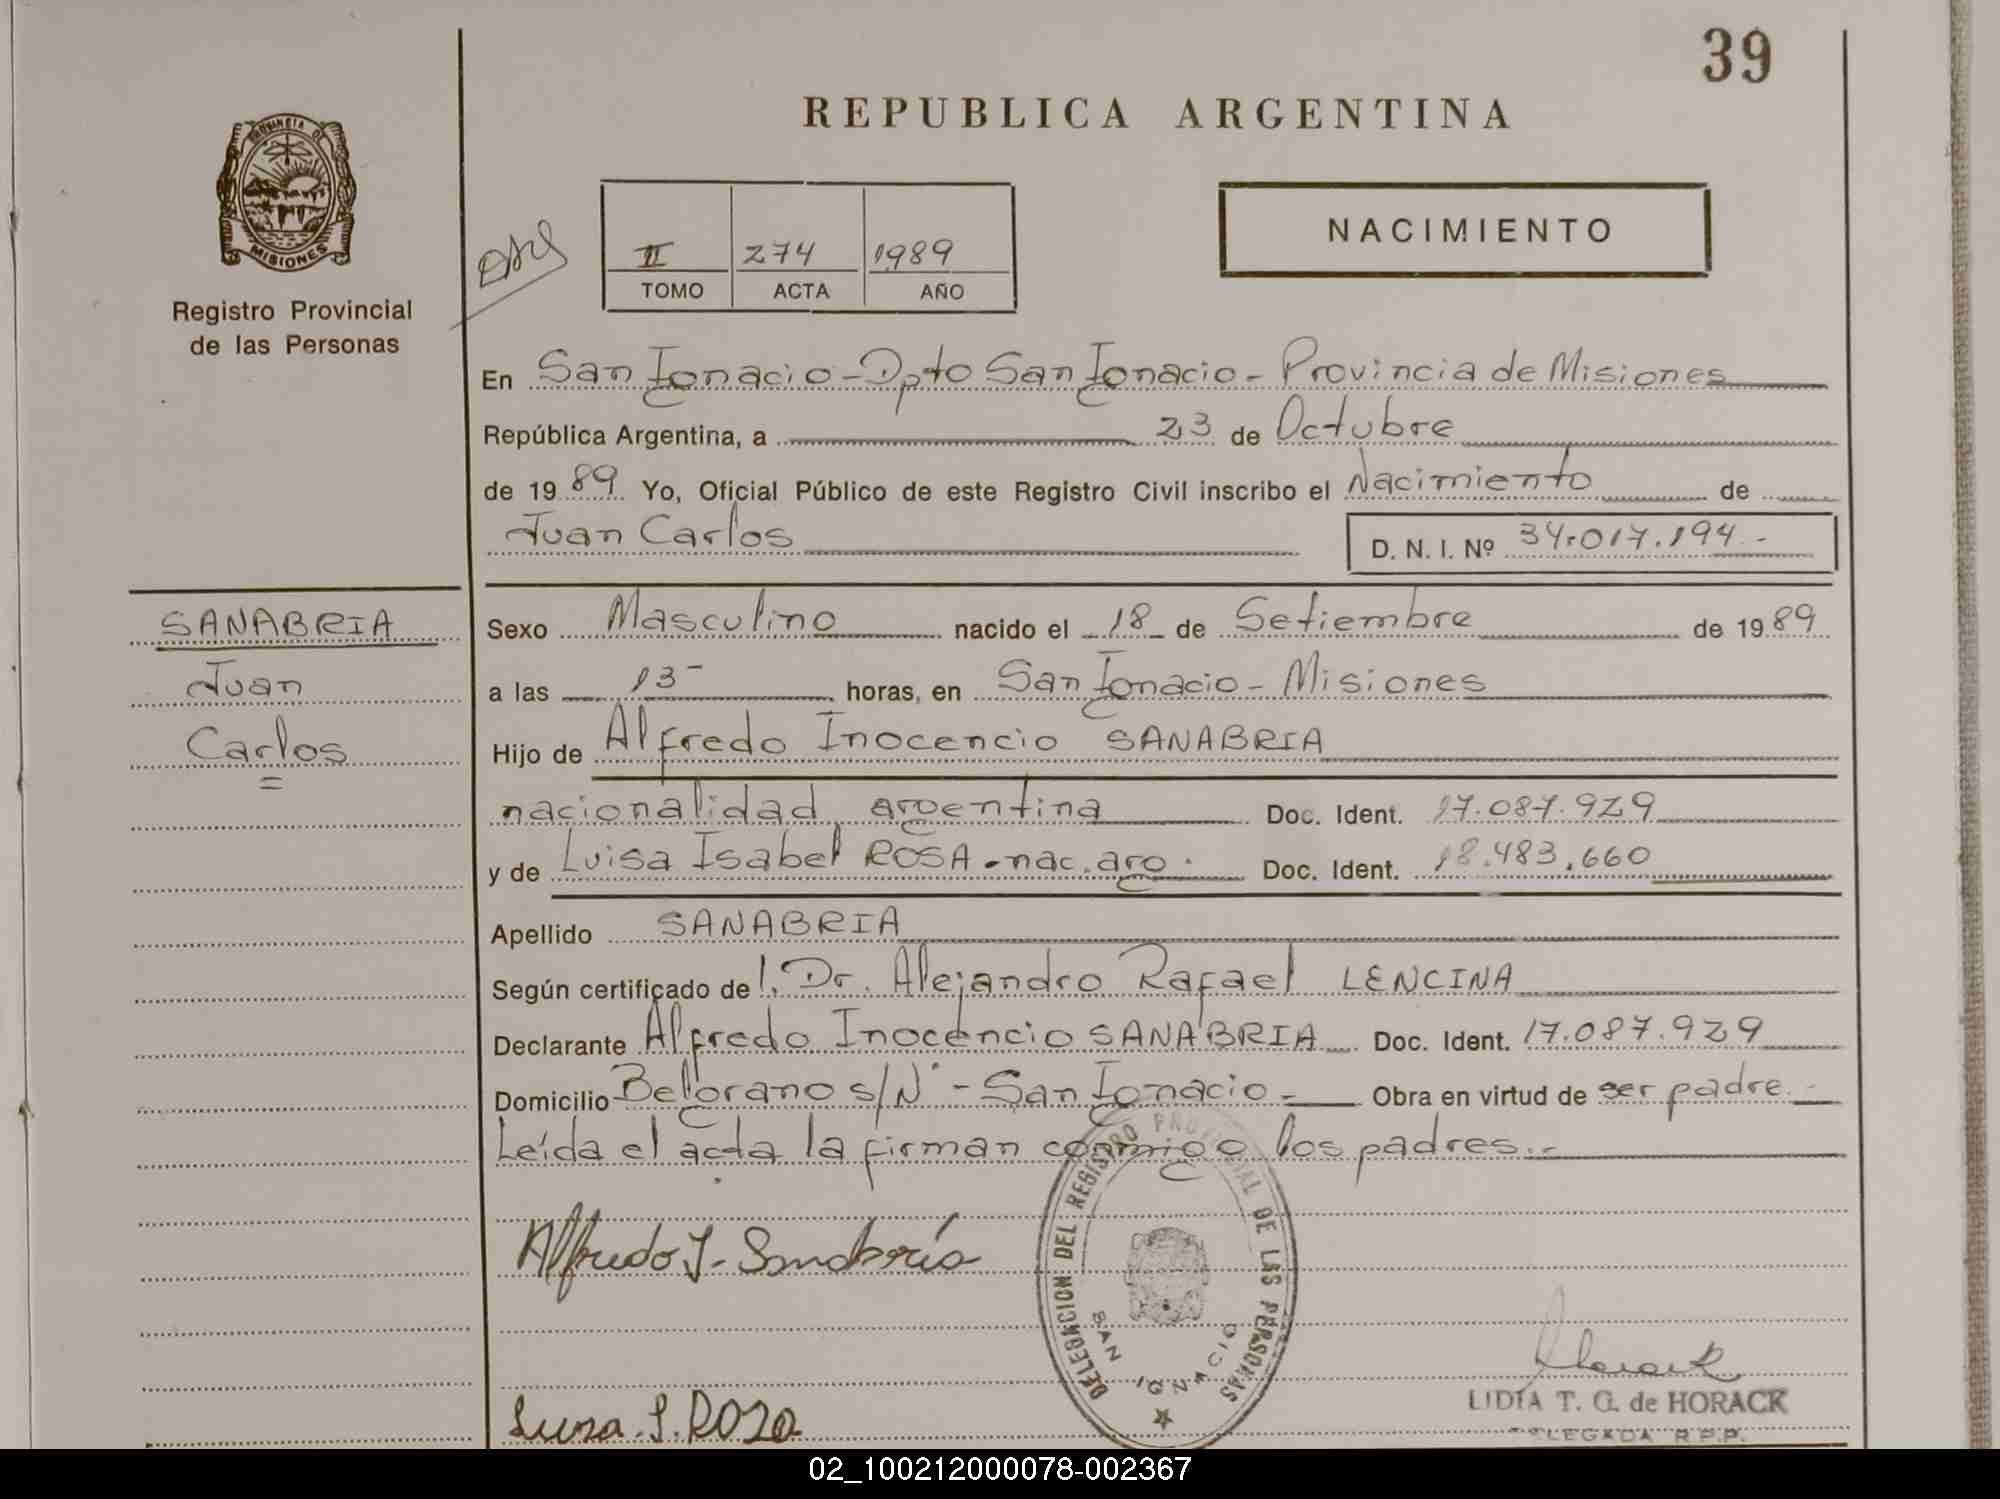 39
REPUBLICA ARGENTINA
PROVINCIA DE
MISIONES
Registro Provincial
de las Personas
II 274 1989
TOMO ACTA AÑO
NACIMIENTO
En San Ignacio - Dpto San Ignacio - Provincia de Misiones
República Argentina, a 23 de Octubre
de 19 89 Yo, Oficial Público de este Registro Civil inscribo el Nacimiento de
Juan Carlos D. N. I. Nº 34.017.194.-
SANABRIA
Juan
Carlos
Sexo Masculino nacido el 18 de Setiembre de 19 89
a las 13- horas, en San Ignacio - Misiones
Hijo de Alfredo Inocencio SANABRIA
nacionalidad argentina Doc. Ident. 17.087.929
y de Luisa Isabel ROSA - nac. arg. Doc. Ident. 18.483.660
Apellido SANABRIA
Según certificado de l. Dr. Alejandro Rafael LENCINA
Declarante Alfredo Inocencio SANABRIA Doc. Ident. 17.087.929
Domicilio Belgrano s/Nº - San Ignacio - Obra en virtud de ser padre.-
Leída el acta la firman conmigo los padres.-
Alfredo I. Sanabria
DELEGACION DEL REGISTRO PROVINCIAL DE LAS PERSONAS
SAN IGNACIO
Horack
LIDIA T. G. de HORACK
DELEGADA R.P.P.
Luisa. I. ROSA
02_100212000078-002367